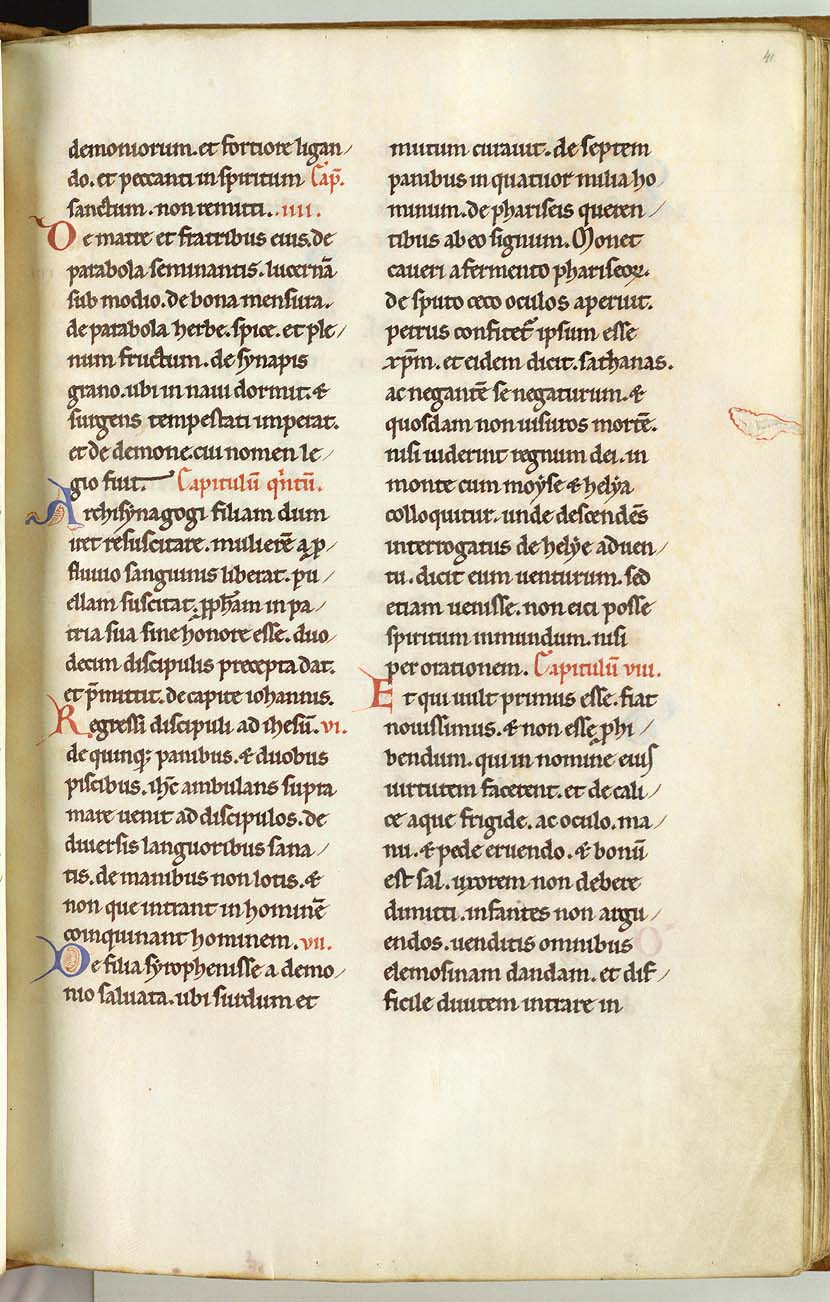 41
demoniorum. et fortiore ligan/
do. et peccanti in spiritum Cap̄.
sanctum. non remitti. .iiii.
De matre et fratribus eius. de
parabola seminantis. lucernā
sub modio. de bona mensura.
de parabola herbe. spice. et ple/
num fructum. de synapis
grano. ubi in naui dormit. &
surgens tempestati imperat.
et de demone. cui nomen le/
gio fuit. Capitulū qͥntū.
Archisynagogi filiam dum
iret resuscitare. mulierē a ꝓ/
fluuio sanguinis liberat. pu/
ellam suscitat. ꝓph̄am in pa/
tria sua sine honore esse. duo/
decim discipulis precepta dat.
et p̄mittit. de capite iohannis.
Regressi discipuli ad ihesū. vi.
de quinqꝫ panibus. & duobus
piscibus. ihc̄ ambulans supra
mare uenit ad discipulos. de
diuersis languoribus sana/
tis. de manibus non lotis. &
non que intrant in hominē
coinquinant hominem. vii.
De filia syrophenisse a demo/
nio saluata. ubi surdum et
mutum curauit. de septem
panibus in quatuor milia ho
minum. de phariseis queren/
tibus ab eo signum. Monet
caueri a fermento phariseoꝝ.
de sputo ceco oculos aperuit.
petrus confitet᷑ ipsum esse
xp̄m. et eidem dicit. sathanas.
ac negantē se negaturum. &
quosdam non uisuros mortē.
nisi uiderint regnum dei. in
monte cum moyse & helya
colloquitur. unde descendēs
interrogatus de helye aduen/
tu. dicit eum uenturum. sed
etiam uenisse. non eici posse
spiritum inmundum. nisi
per orationem. Capitulū viii.
Et qui uult primus esse. fiat
nouissimus. & non esse ꝓhi/
bendum. qui in nomine eius
uirtutem facerent. et de cali/
ce aque frigide. ac oculo. ma/
nu. & pede eruendo. & bonū
est sal. uxorem non debere
dimitti. infantes non argu/
endos. uenditis omnibus
elemosinam dandam. et dif/
ficile diuitem intrare in